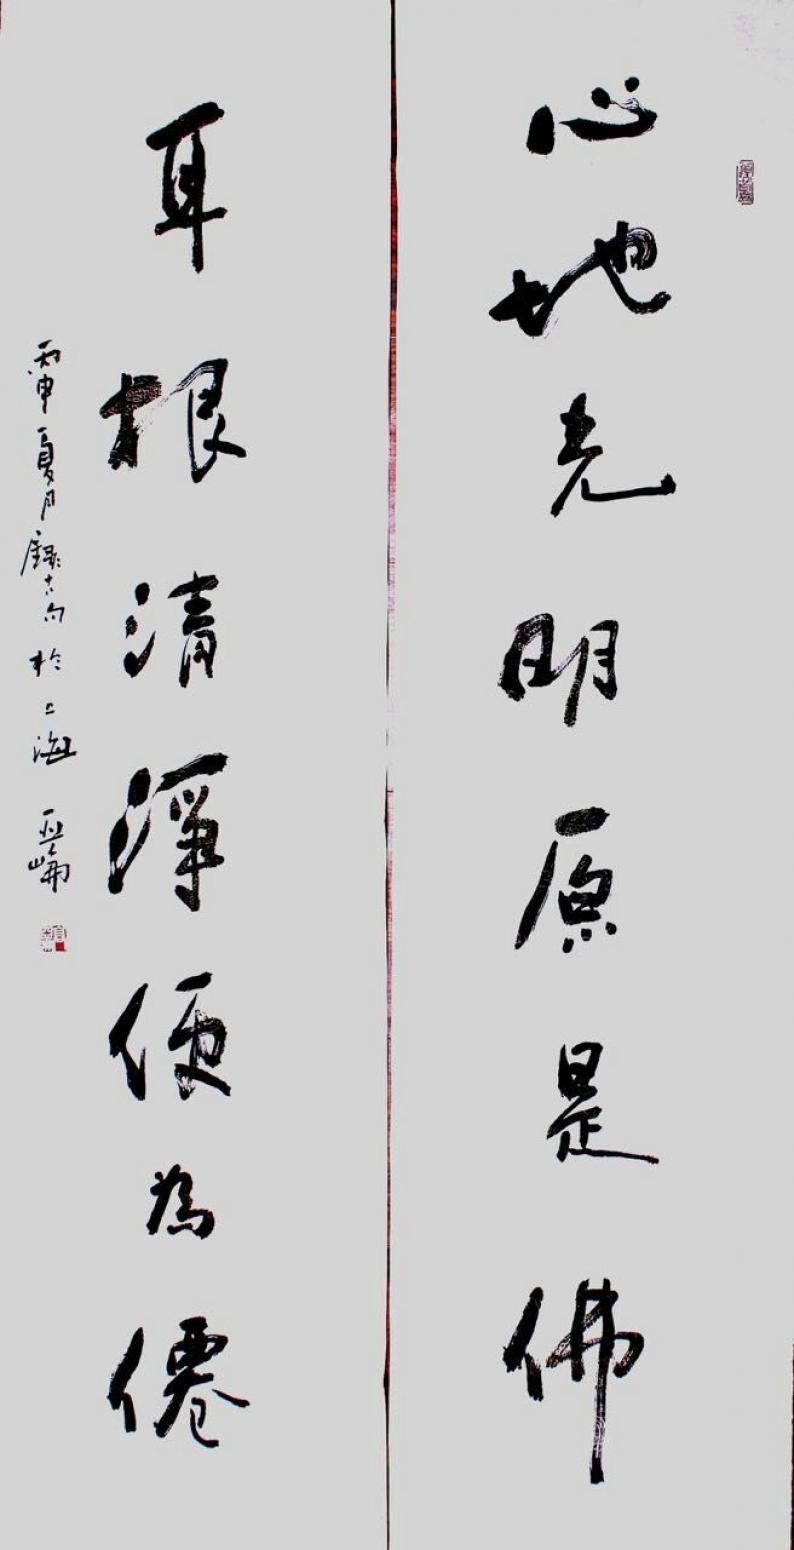 心地光明原是佛
耳根清淨便為僊
丙申夏月录古句於上海 亚崘